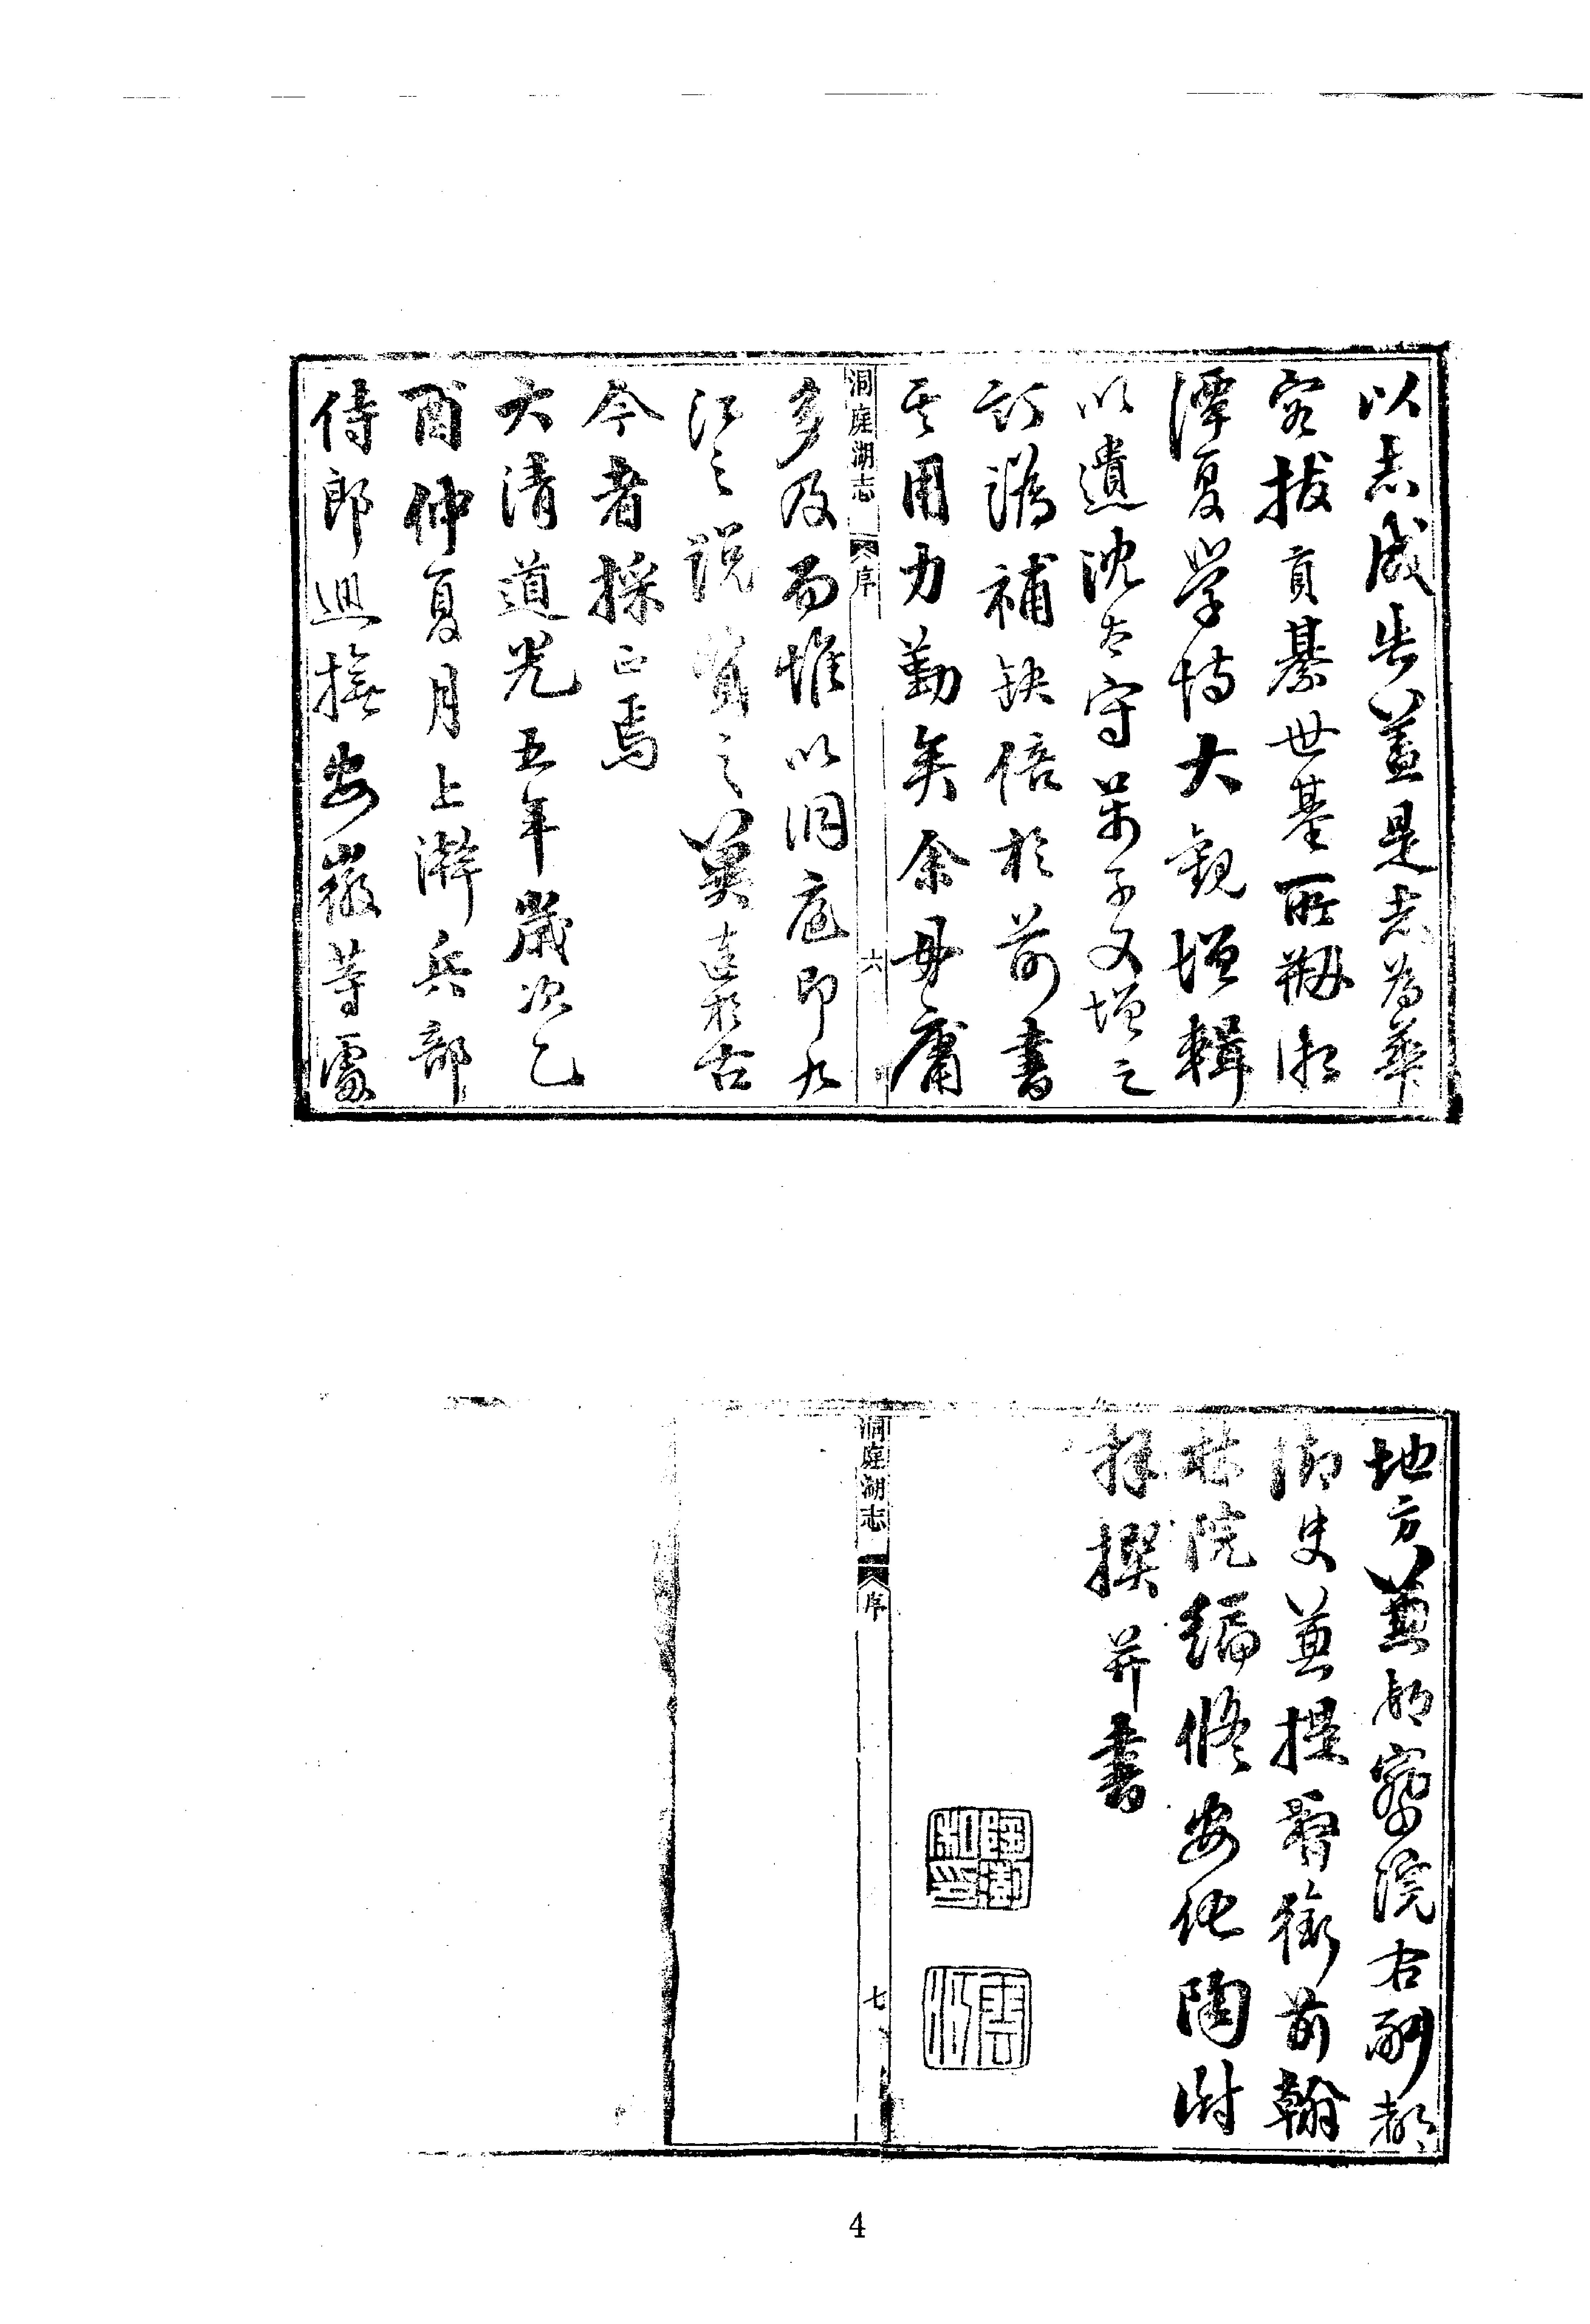 以志成告蓋是志為華
容拔貢綦世基所刱湘
潭夏學博大觀增輯
以遺沈太守畀予又增之
訂譌補缺倍於前書
其用力勤矣余毋庸
洞庭湖志
序
六
多及而惟以洞庭即九
江之說質之冀達於古
今者採正焉
大清道光五年歲次乙
酉仲夏月上澣兵部
侍郎巡撫安徽等處
地方兼都察院右副都
御史兼提督銜前翰
林院編修安化陶澍
拜撰并書
陶澍私印
雲汀
洞庭湖志
序
七
4